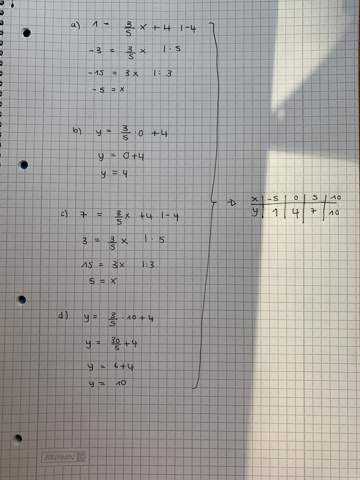 a) 1 = 3/5 x + 4 |-4
-3 = 3/5 x |·5
-15 = 3x |:3
-5 = x
b) y = 3/5 · 0 + 4
y = 0+4
y = 4
c) 7 = 3/5 x + 4 |-4
3 = 3/5 x |·5
15 = 3x |:3
5 = x
d) y = 3/5 · 10 + 4
y = 30/5 + 4
y = 6+4
y = 10
x | -5 | 0 | 5 | 10
y | 1 | 4 | 7 | 10